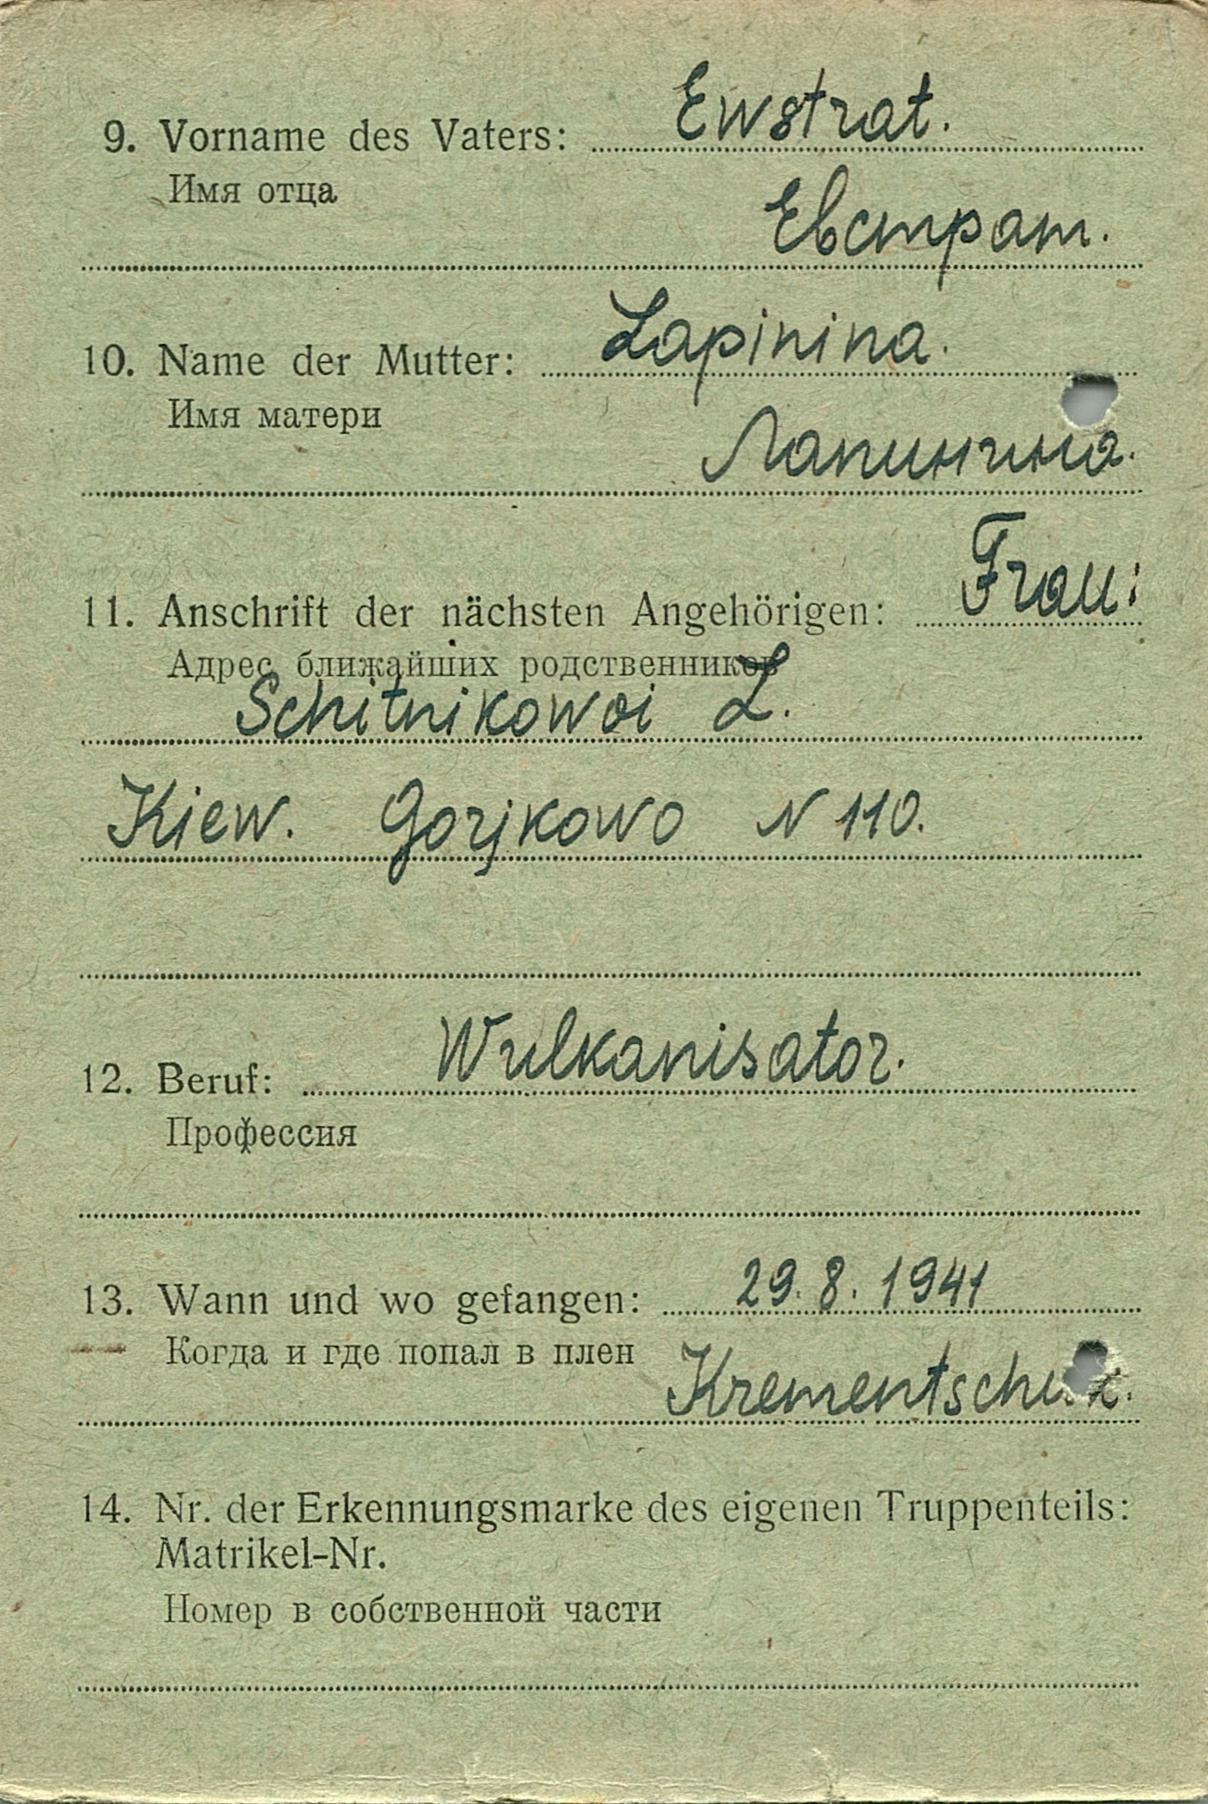 9. Vorname des Vaters: Ewstrat.
Имя отца
Евстрат.
10. Name der Mutter: Lapinina.
Имя матери
Лапинина.
11. Anschrift der nächsten Angehörigen: Frau:
Адрес ближайших родственников
Schitnikowoi L.
Kiew. Gorjkowo N 110.
12. Beruf: Wulkanisator.
Профессия
13. Wann und wo gefangen: 29. 8. 1941
Когда и где попал в плен
Krementschuk.
14. Nr. der Erkennungsmarke des eigenen Truppenteils:
Matrikel-Nr.
Номер в собственной части